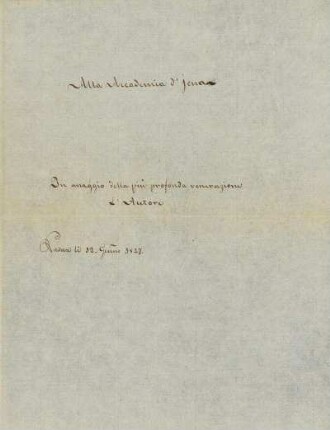 Alla Accademia d'Jena
In omaggio della più profonda venerazione
L'Autore
li 22. Giugno